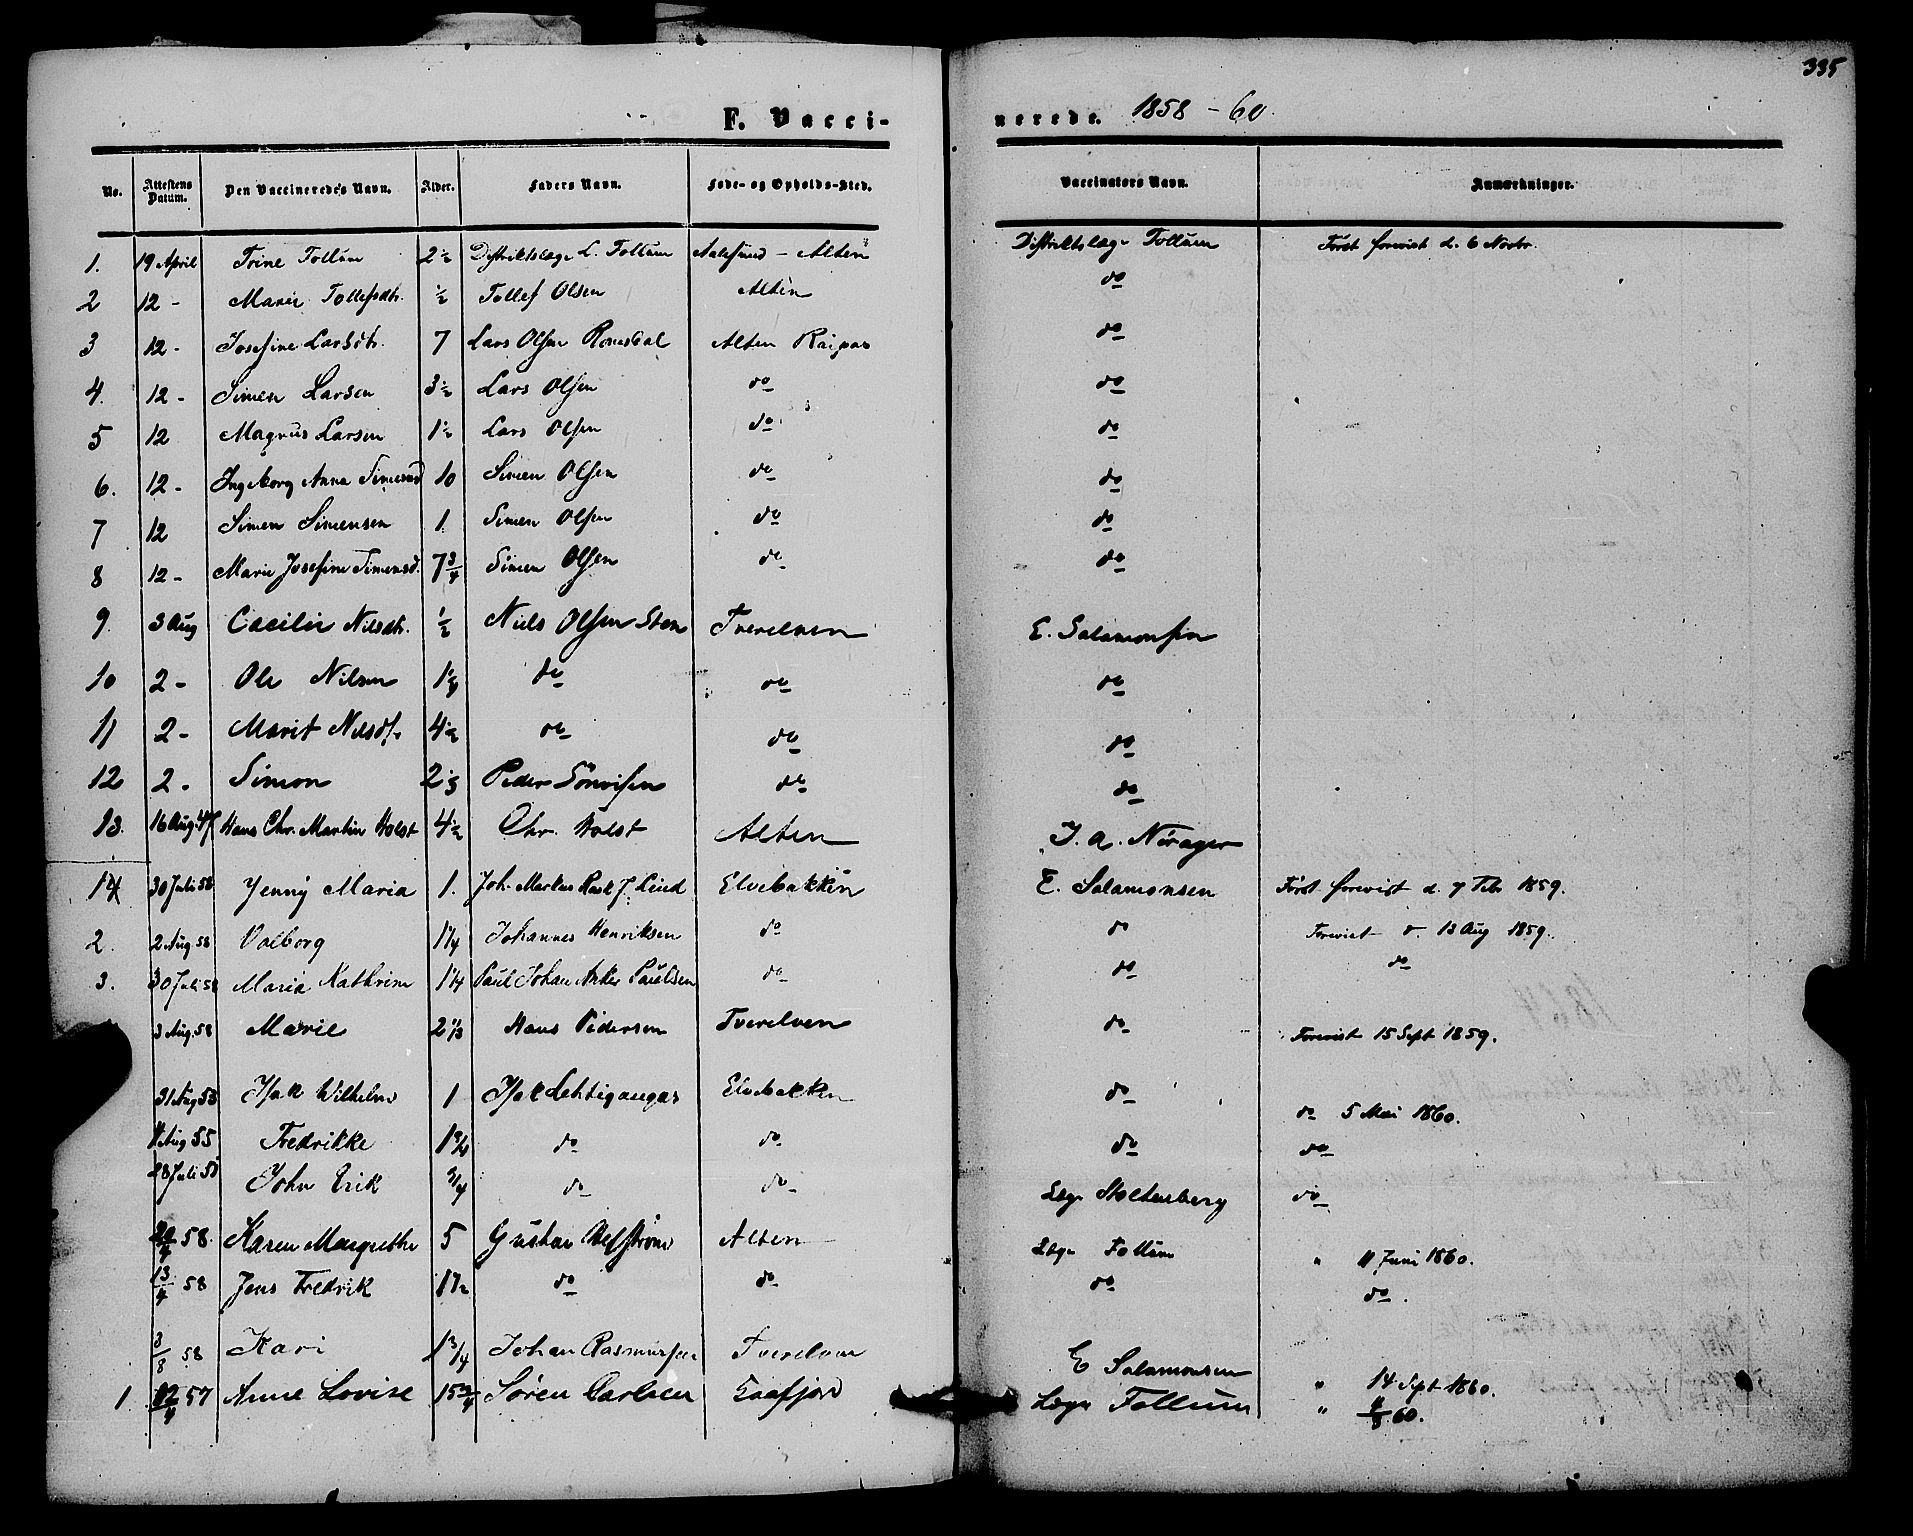 335
F. Vaccinerede. 1858 - 60.
No. Attestens Datum. Den Vaccineredes Navn. Alder. Faders Navn. Føde- og Opholds-Sted. Vaccinators Navn. Anmærkninger.
1. 19 April Trine Follum 2 ½ Distriktslæge L. Follum Aalesund - Alten Distriktslæge Follum Først forevist d. 6 Novbr.
2 12 - Marie Tollefsdtr. ½ Tollef Olsen Alten do
3 12 - Josefine Larsdtr. 7 Lars Olsen Alten Raipas do
4. 12 - Simen Larsen 3 ½ Lars Olsen do do
5 12 Magnus Larsen 1 ½ Lars Olsen do do
6. 12 - Ingeborg Anna Simensd 10 Simen Olsen do do
7 12 Simen Simensen 1. Simen Olsen do do
8 12 - Marie Josefine Simensd. 7 ¾ Simen Olsen do do
9. 3 Aug Cæcilie Nilsdtr. ½ Niels Olsen Sten Tverelven E. Salamonsen
10 2 - Ole Nilsen do do do
11 2 - Marit Nilsdtr 4 ½ do do do
12 2 - Simon Peder do do
13. 16 Aug. 47 Hans Chr. Martin Holst 4 ½ Chr. Holst Alten J. A. Nørager
14 30 Juli 58 Jenny Maria 1. Joh. Markus Lind Elvebakken E. Salamonsen Først forevist d. 7 Febr 1859.
2. 2 Aug 58 Valborg 1 ¼ Johannes Henriksen do do Forevist d. 13 Aug 1859.
3. 30 Juli 58 Maria Kathrine 1 ¼ Paul Johan Anker Paulsen do do do
3 Aug. 58 Marie 2 ⅓ Hans Pedersen Tverelven do Forevist 15 Sept 1859.
31 Aug 53 Isak Wilhelm 1 Isak Lehtigangas Elvebakken do do 5 Mai 1860.
11 Aug 55 Fredrikke 1 ¾ do do do do
28 Juli John Erik ¾ do do Læge Stoltenberg do
58. Karen Margrethe 5 Gustav Alten Læge Follum " 11 Juni 1860.
13/4 58 Jens Fredrik 1 ½ do do do do.
3/8 58 Kari 1 ¾ Johan Rasmussen Tverelven E Salamonsen " 14 Sept 1860.
1 12/4 57 Anne Lovise 15 ¾ Søren Carlsen Kaafjord Læge Follum " 60.